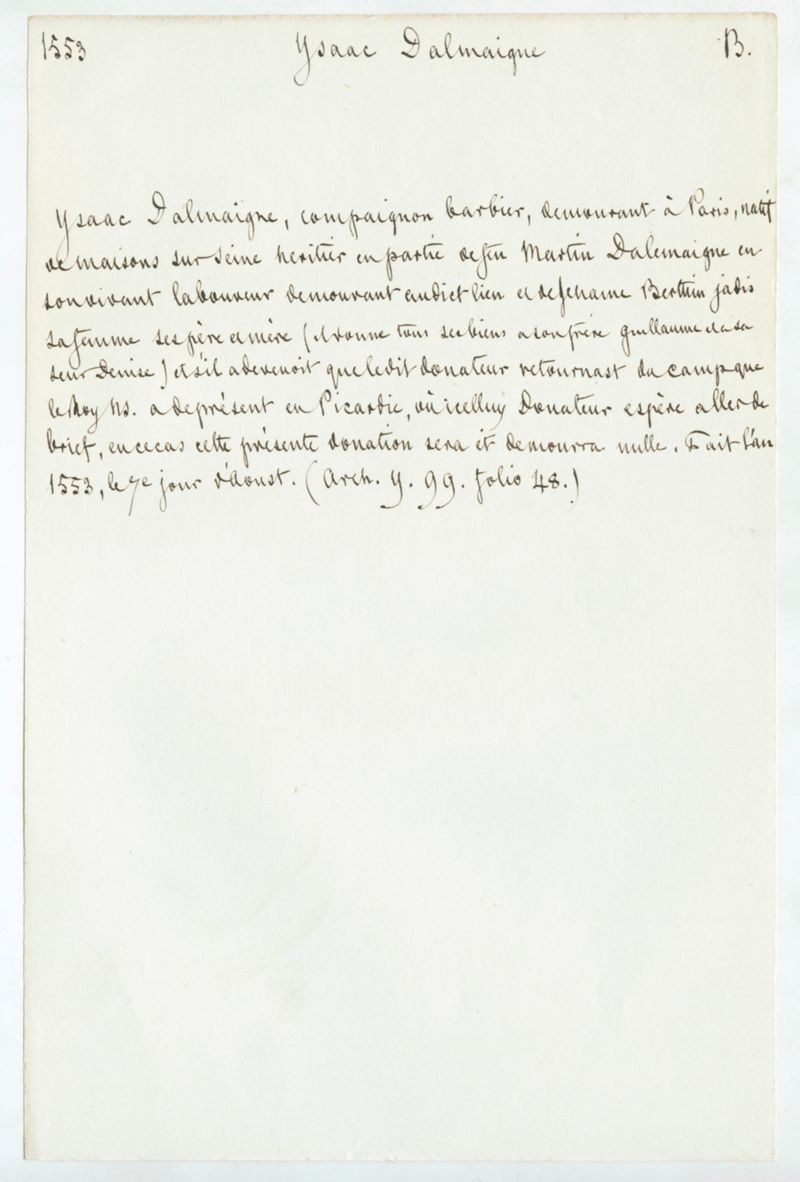 1553 Ysaac Dalmaigne B.
Ysaac Dalmaigne, compaignon barbier, demourant à Paris, natif
de maisons sur Seine heritier en partie de feu Martin Dalemaigne en
son vivant laboureur demourant audict lieu et de Jehanne Berthin jadis
sa femme ses père et mère (il donne tous ses biens a son frère guillaume et a sa
seur Denise) et s'il advenoit que le dit donateur retournast du camp que
le Roy Ns. a de présent en Picardie, où icelluy Donateur espère aller de
brief, en ce cas cette présente donation sera et demourra nulle. Fait l'an
1553, le 7e jour d'Aoust. (Arch. Y. 99. folio 48.)